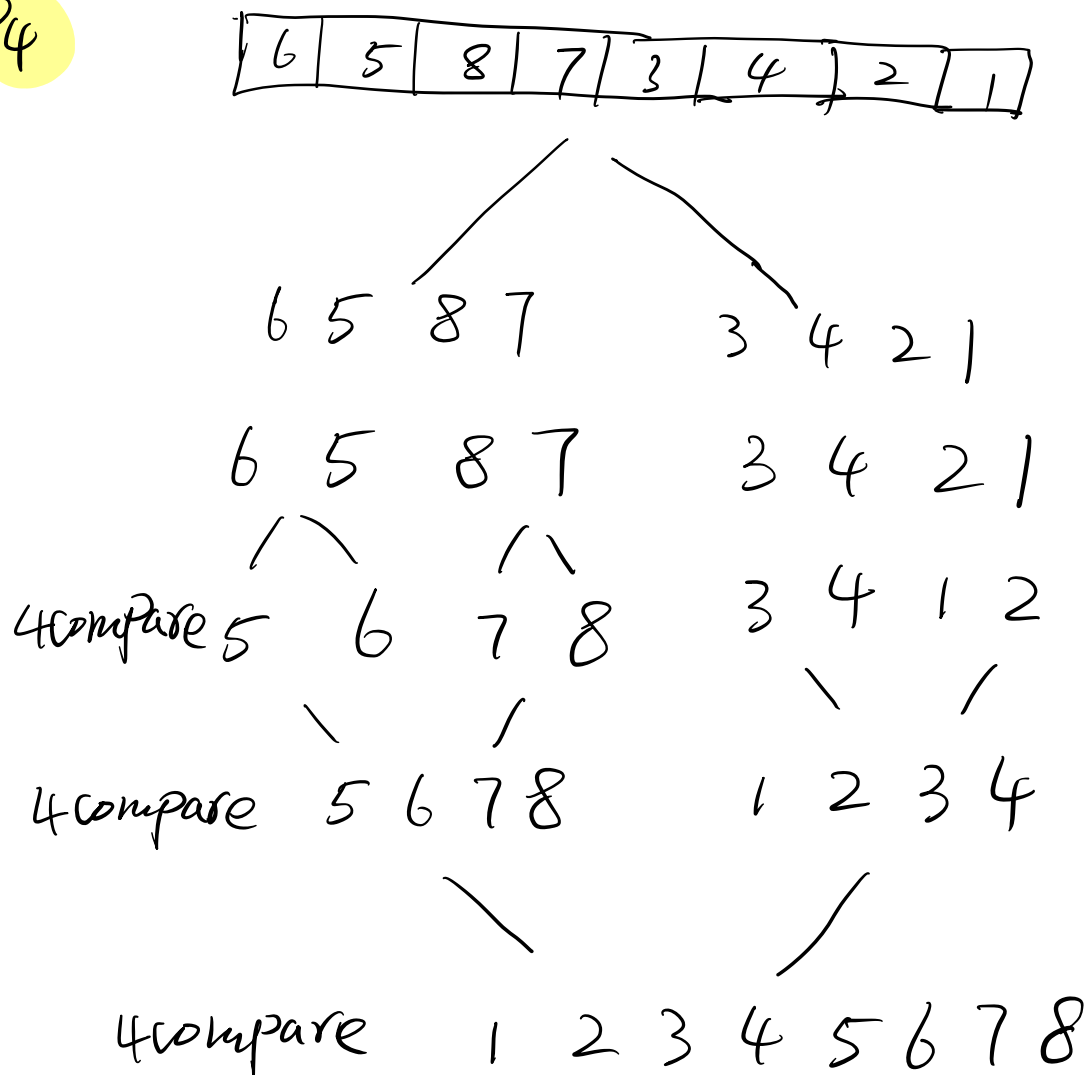 P4
6 5 8 7 3 4 2 1
6 5 8 7 3 4 2 1
6 5 8 7 3 4 2 1
4compare 5 6 7 8 3 4 1 2
4compare 5 6 7 8 1 2 3 4
4compare 1 2 3 4 5 6 7 8